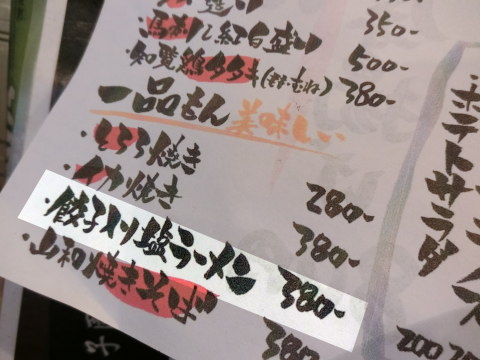 350-
馬刺し紅白盛り 500-
・知覧鶏タタキ(もも・むね) 380-
一品もん 美味しい
・とろろ焼き 280-
・イカ焼き 380-
・餃子入り塩ラーメン 380-
・山和焼きそば 380-
・ポテトサラダ
200